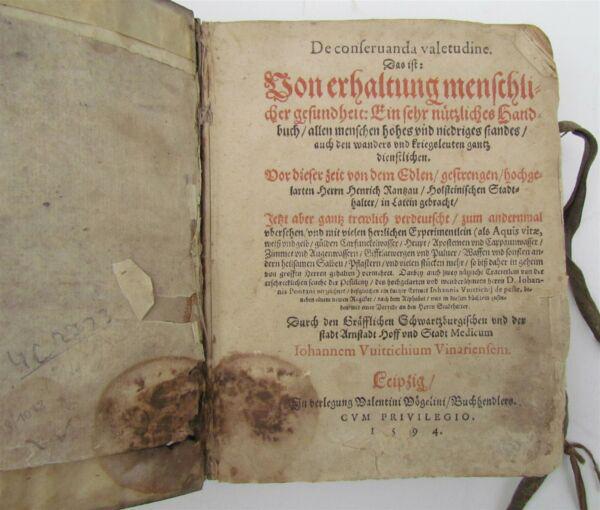 De conseruanda valetudine.
Das ist:
Von erhaltung menschli-
cher gesundheit: Ein sehr nützliches Hand-
buch / allen menschen hohes vnd niedriges standes /
auch den wanders vnd kriegsleuten gantz
dienstlichen.
Vor dieser zeit von dem Edlen / gestrengen / hochge-
larten Herrn Henrich Rantzau / Holsteinischen Stadt-
halter / in Latein gebracht /
Jetzt aber gantz trewlich verdeutscht / zum andernmal
vbersehen / vnd mit vielen herrlichen Experimentlein (als Aquis vitæ,
weiß vnd gelb / gülden Carfunckelwasser / Heupt / Apostemen vnd Cappaunwasser /
Zimmet vnd Augenwassern / Gifftlatwergen vnd Puluer / Waffen vnd sonsten an-
dern heilsamen Salben / Pflastern / vnd vielen stücken mehr / so biß daher in geheim
von grossen Herren gehalten) vermehret. Darbey auch zwey nützliche Tractetlein von der
erschrecklichen seuche der Pestilentz / des hochgelarten vnd D. Iohan-
nis Pontani Iohannis Vuittichij de peste,
neben einem newen Register / nach dem Alphabet /
Durch den Gräfflichen Schwartzburgischen vnd der
stadt Arnstadt Hoff vnd Stadt Medicum
Iohannem Vuittichium Vinariensem.
Leipzig /
In verlegung Valentini Vögelini / Buchhendlers.
CVM PRIVILEGIO.
1 5 9 4.